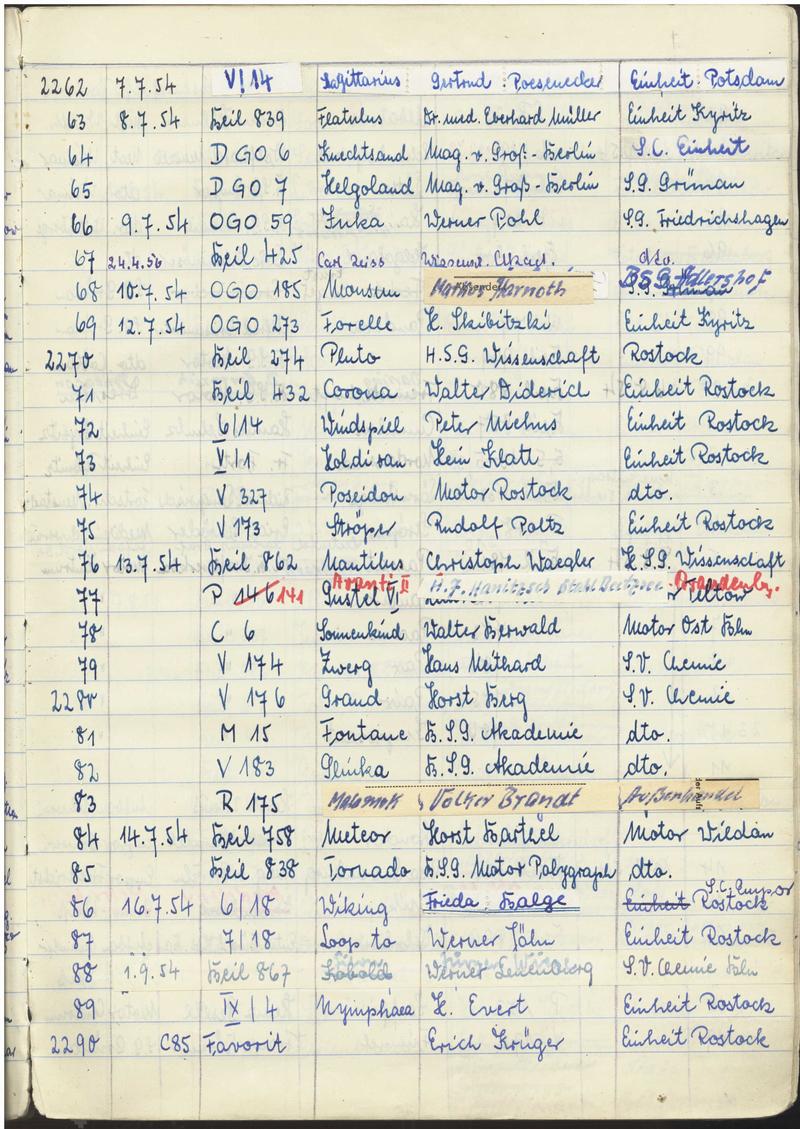 2262 7.7.54 V/14 Sagittarius Gertrud Poesenecker Einheit Potsdam
63 8.7.54 Beil 839 Flatulus Dr. med. Everhard Müller Einheit Kyritz
64 D GO 6 Knechtsand Mag. v. Groß-Berlin S.C. Einheit
65 D GO 7 Helgoland Mag. v. Groß-Berlin S.G. Grünau
66 9.7.54 OGO 59 Inka Werner Pohl S.G. Friedrichshagen
67 24.4.56 Beil 425 Carl Zeiss dto.
68 10.7.54 OGO 185 Monsun B.S.G. Adlershof
69 12.7.54 OGO 273 Forelle H. Skibitzki Einheit Kyritz
2270 Beil 274 Pluto H.S.G. Wissenschaft Rostock
71 Beil 432 Corona Walter Diderich Einheit Rostock
72 6/14 Windspiel Peter Niehus Einheit Rostock
73 V/1 Hein Klatt Einheit Rostock
74 V 327 Poseidon Motor Rostock dto.
75 V 173 Ströper Rudolf Poltz Einheit Rostock
76 13.7.54 Beil 862 Nautilus Christoph Waegler H.S.G. Wissenschaft
Avanti II H.J. Hanitzsch Stahl Brandenbg.
77 P 146 141 Gustel VI Teltow
78 C 6 Sonnenkind Walter Berwald Motor Ost Bln
79 V 174 Zwerg Hans Neithard S.V. Chemie
2280 V 176 Grand Horst Berg S.V. Chemie
81 M 15 Fontane B.S.G. Akademie dto.
82 V 183 Glinka B.S.G. Akademie dto.
83 R 175 Volker Brandt Außenhandel
84 14.7.54 Beil 758 Meteor Horst Barthel Motor Wildau
85 Beil 838 Tornado B.S.G. Motor Polygraph dto.
S.C. Empor
86 16.7.54 6/18 Wiking Frieda Balge Einheit Rostock
87 7/18 Loop to Werner Jähn Einheit Rostock
88 1.9.54 Beil 867 Kobold Werner S.V. Chemie Bln
89 IX/4 Nymphaea H. Evert Einheit Rostock
2290 C85 Favorit Erich Krüger Einheit Rostock